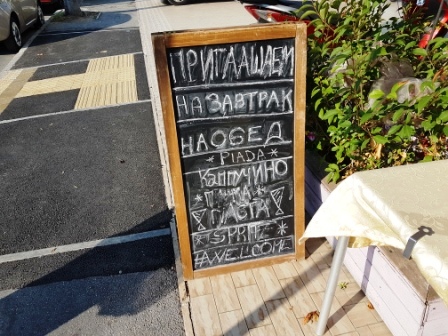 ПРИГЛАШАЕМ
НА ЗАВТРАК
НА ОБЕД
* PIADA *
Каппучино
ПАСТА
* SPRITZ *
WELLCOME